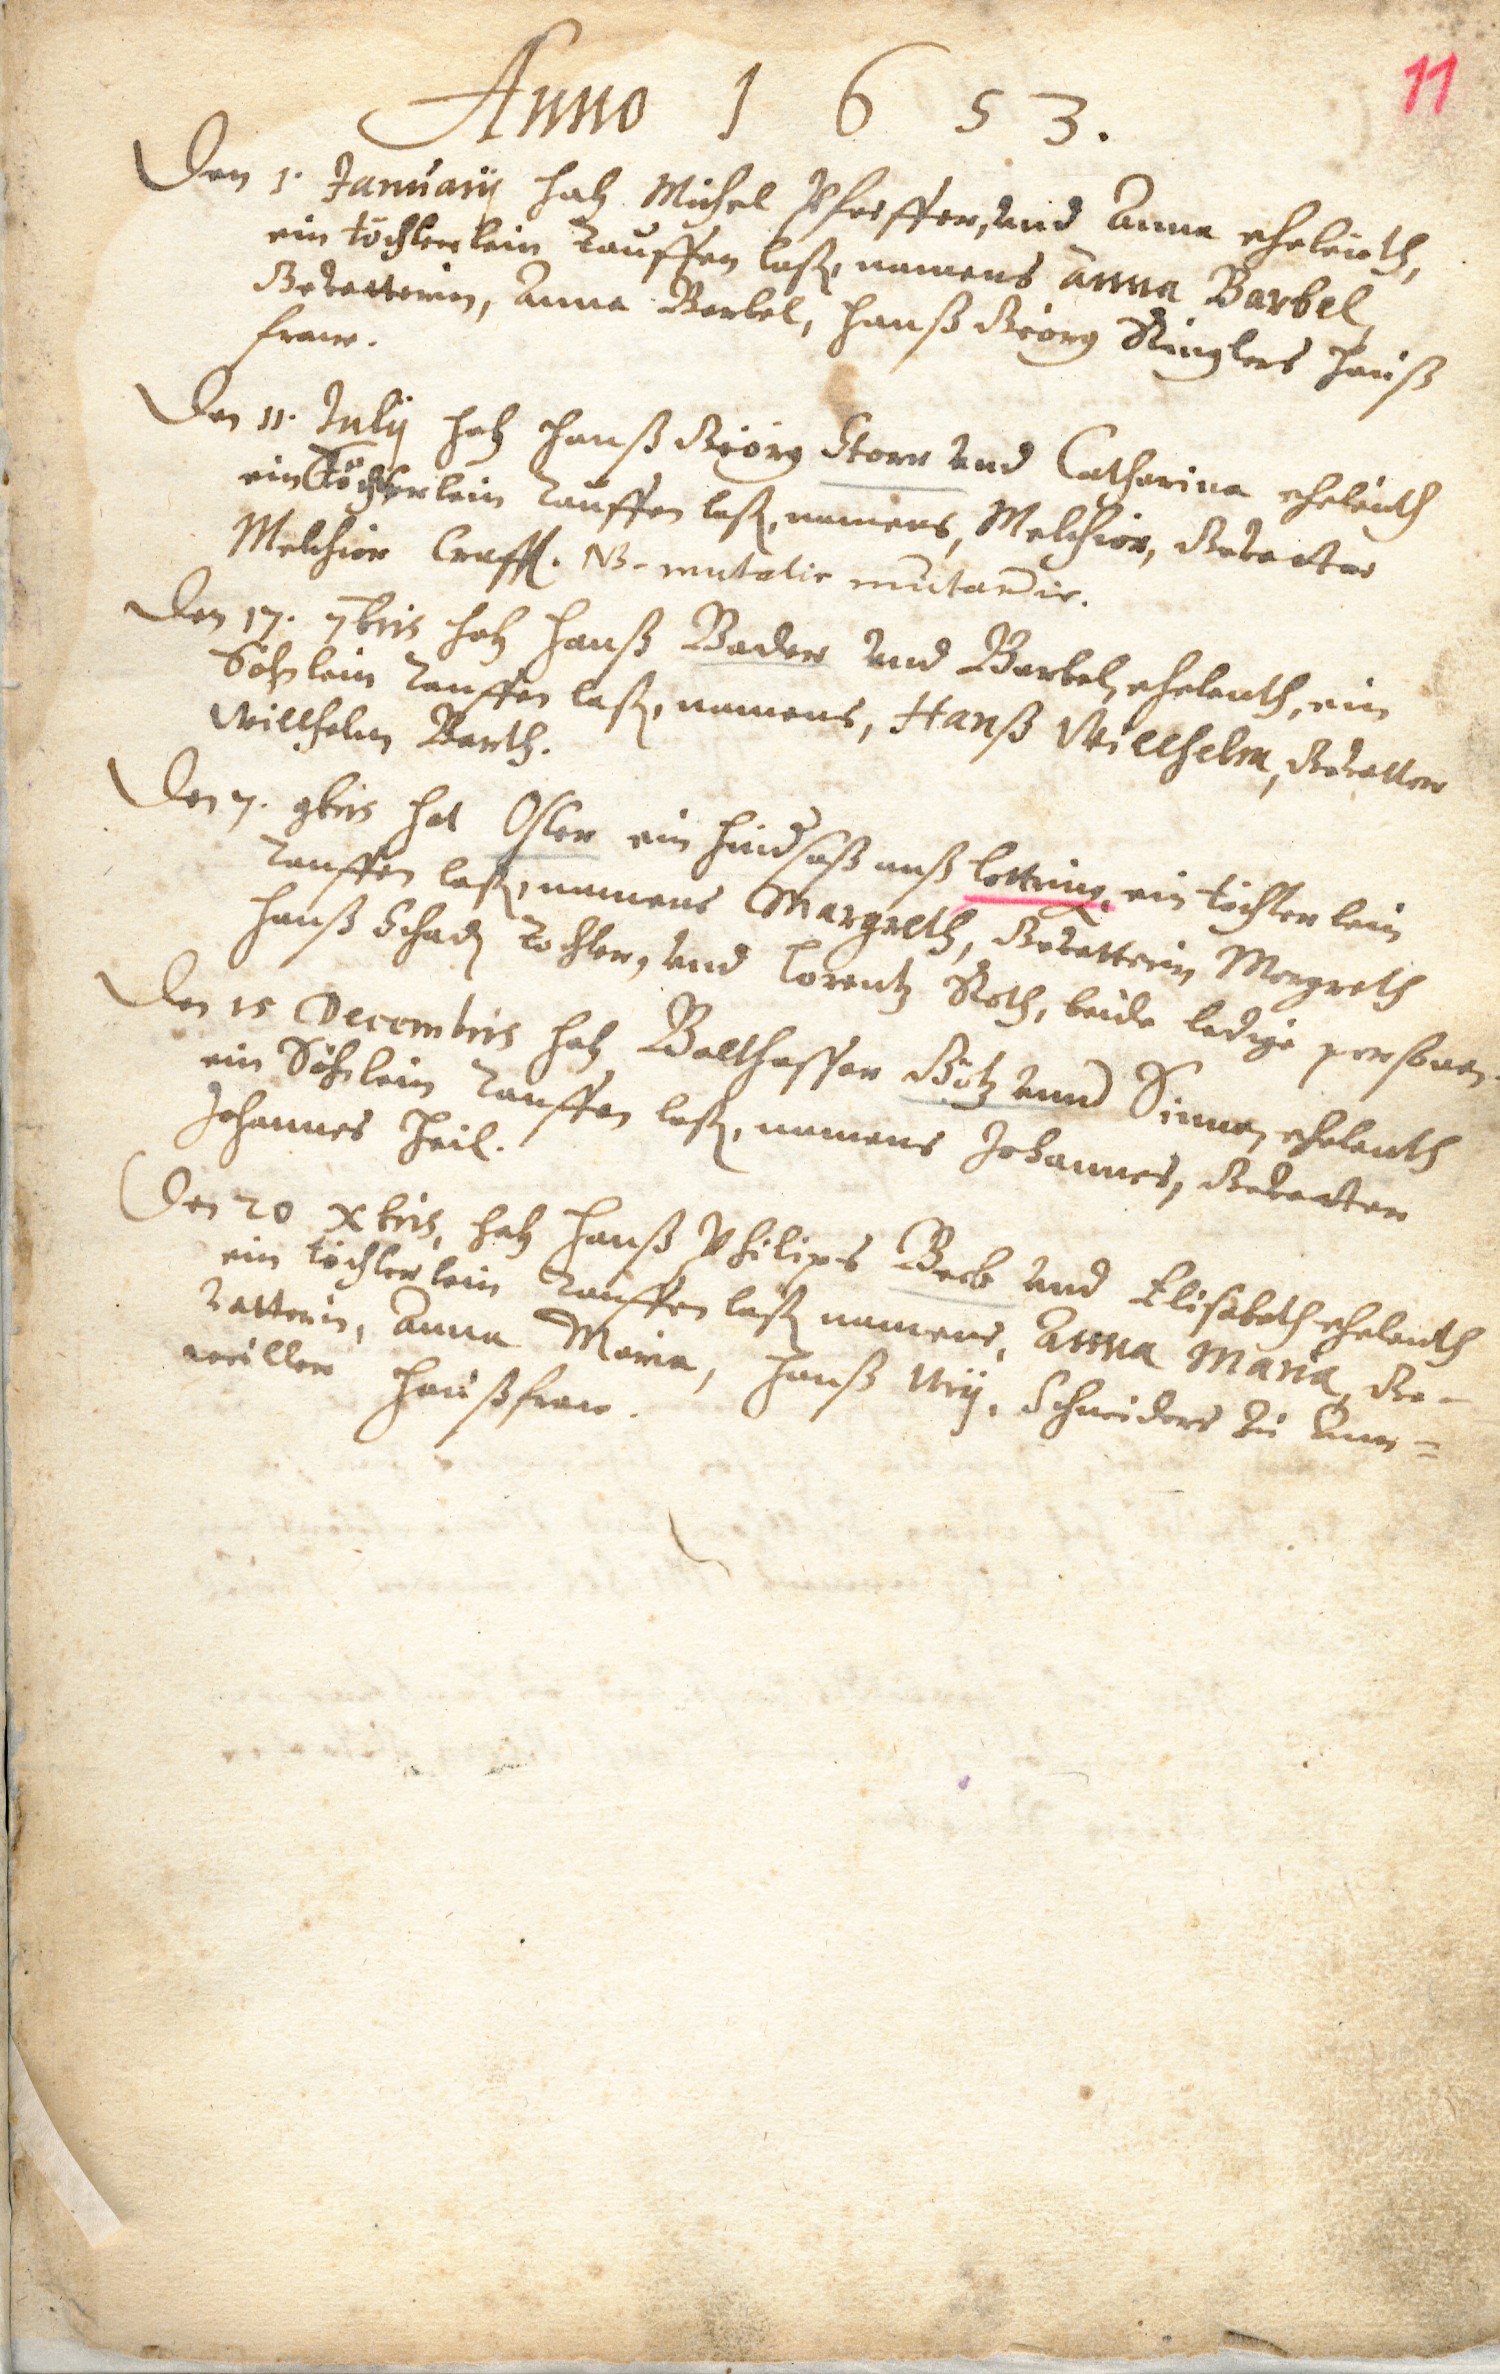 11
Anno 1 6 5 3.
Den 1. Januarij hatt Michel Pfeiffer, und Anna eheleüth,
ein töchterlein Tauffen laßen, namens Anna Barbel,
Gevatterin, Anna Barbel, Hanß Georg Ringlers Hauß
fraw.
Den 11. Julij hatt Hanß Georg Storr und Catharina eheleüth
ein Töchterlein Tauffen laßen, namens, Melchior, Gevatter
Melchior Crafft. NB. mutatis mutandis.
Den 17. 7bris hatt Hanß Bader und Barbel, eheleüth, ein
Söhnlein Tauffen laßen, namens, Hanß Willhelm, Gevatter
Willhelm Barth.
Den 7. 9bris hat Oster ein hindsaß auß Lottring, ein töchterlein
Tauffen laßen, namens Margreth, Gevatterin Margreth
Hanß Schaden Tochter, und Lorentz Roth, beide ledige personen.
Den 15 Decembris hatt Balthasser Götz unnd Sinna, eheleüth
ein Söhnlein Tauffen laßen, namens Johannes, Gevatter
Johannes Heil.
Den 20 Xbris, hatt Hanß Philips Beck und Elisabeth eheleüth
ein töchterlein Tauffen laßen namens, Anna Maria, Ge-
vatterin, Anna Maria, Hanß Urij, Schneiders zu Ann=
weiller Haußfraw.